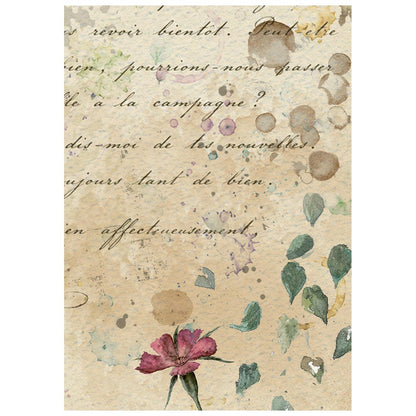 s revoir bientôt. Peut être
bien, pourrions-nous passer
lle à la campagne ?
dis-moi de tes nouvelles!
oujours tant de bien.
en affectueusement